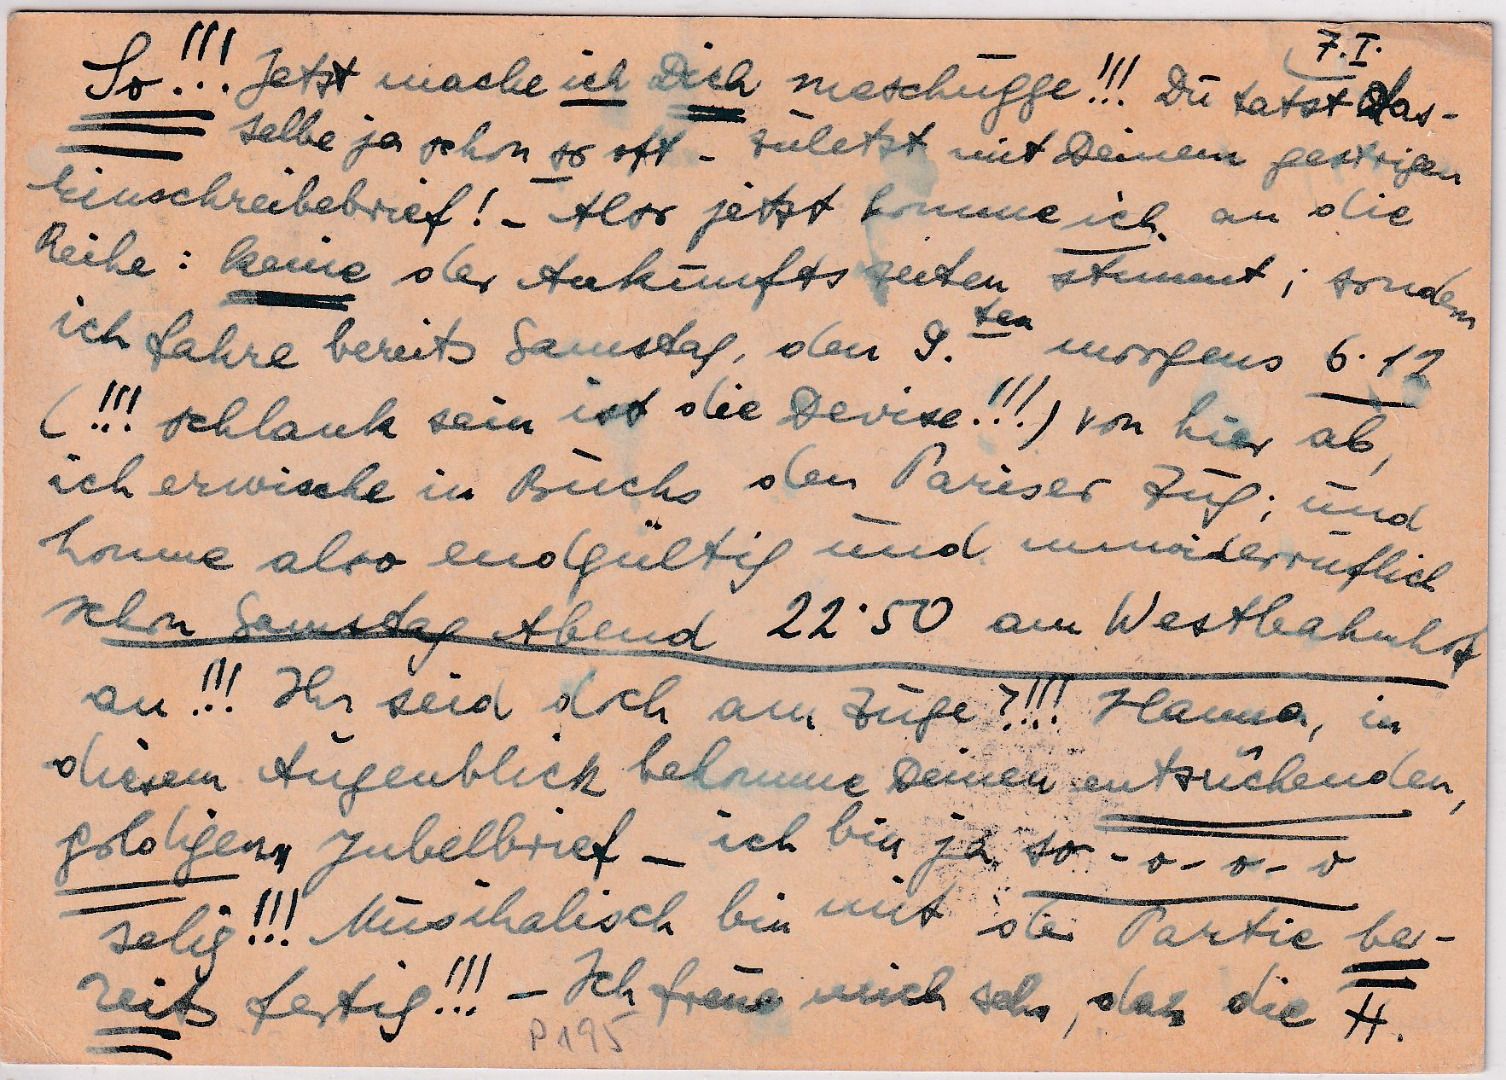 7.I.
So!!! Jetzt mache ich Dich meschugge!!! Du tatst das-
selbe ja schon so oft - zuletzt mit Deinem gestrigen
Einschreibebrief! - Also jetzt komme ich an die
Reihe: keine der Ankunftszeiten stimmt; sondern
ich fahre bereits Samstag, den 9.ten morgens 6.12
(!!! schlank sein ist die Devise!!!) von hier ab,
ich erwische in Buchs den Pariser Zug; und
komme also endgültig und unwiderruflich
schon Samstag Abend 22.50 am Westbahnhof
an!!! Ihr seid doch am Zuge?!!! Hanna, in
diesem Augenblick bekomme Deinen entzückenden,
goldigen, Jubelbrief - ich bin ja so-o-o-o
selig!!! Musikalisch bin mit der Partie be-
reits fertig!!! - Ich freue mich sehr, dass die H.
P195